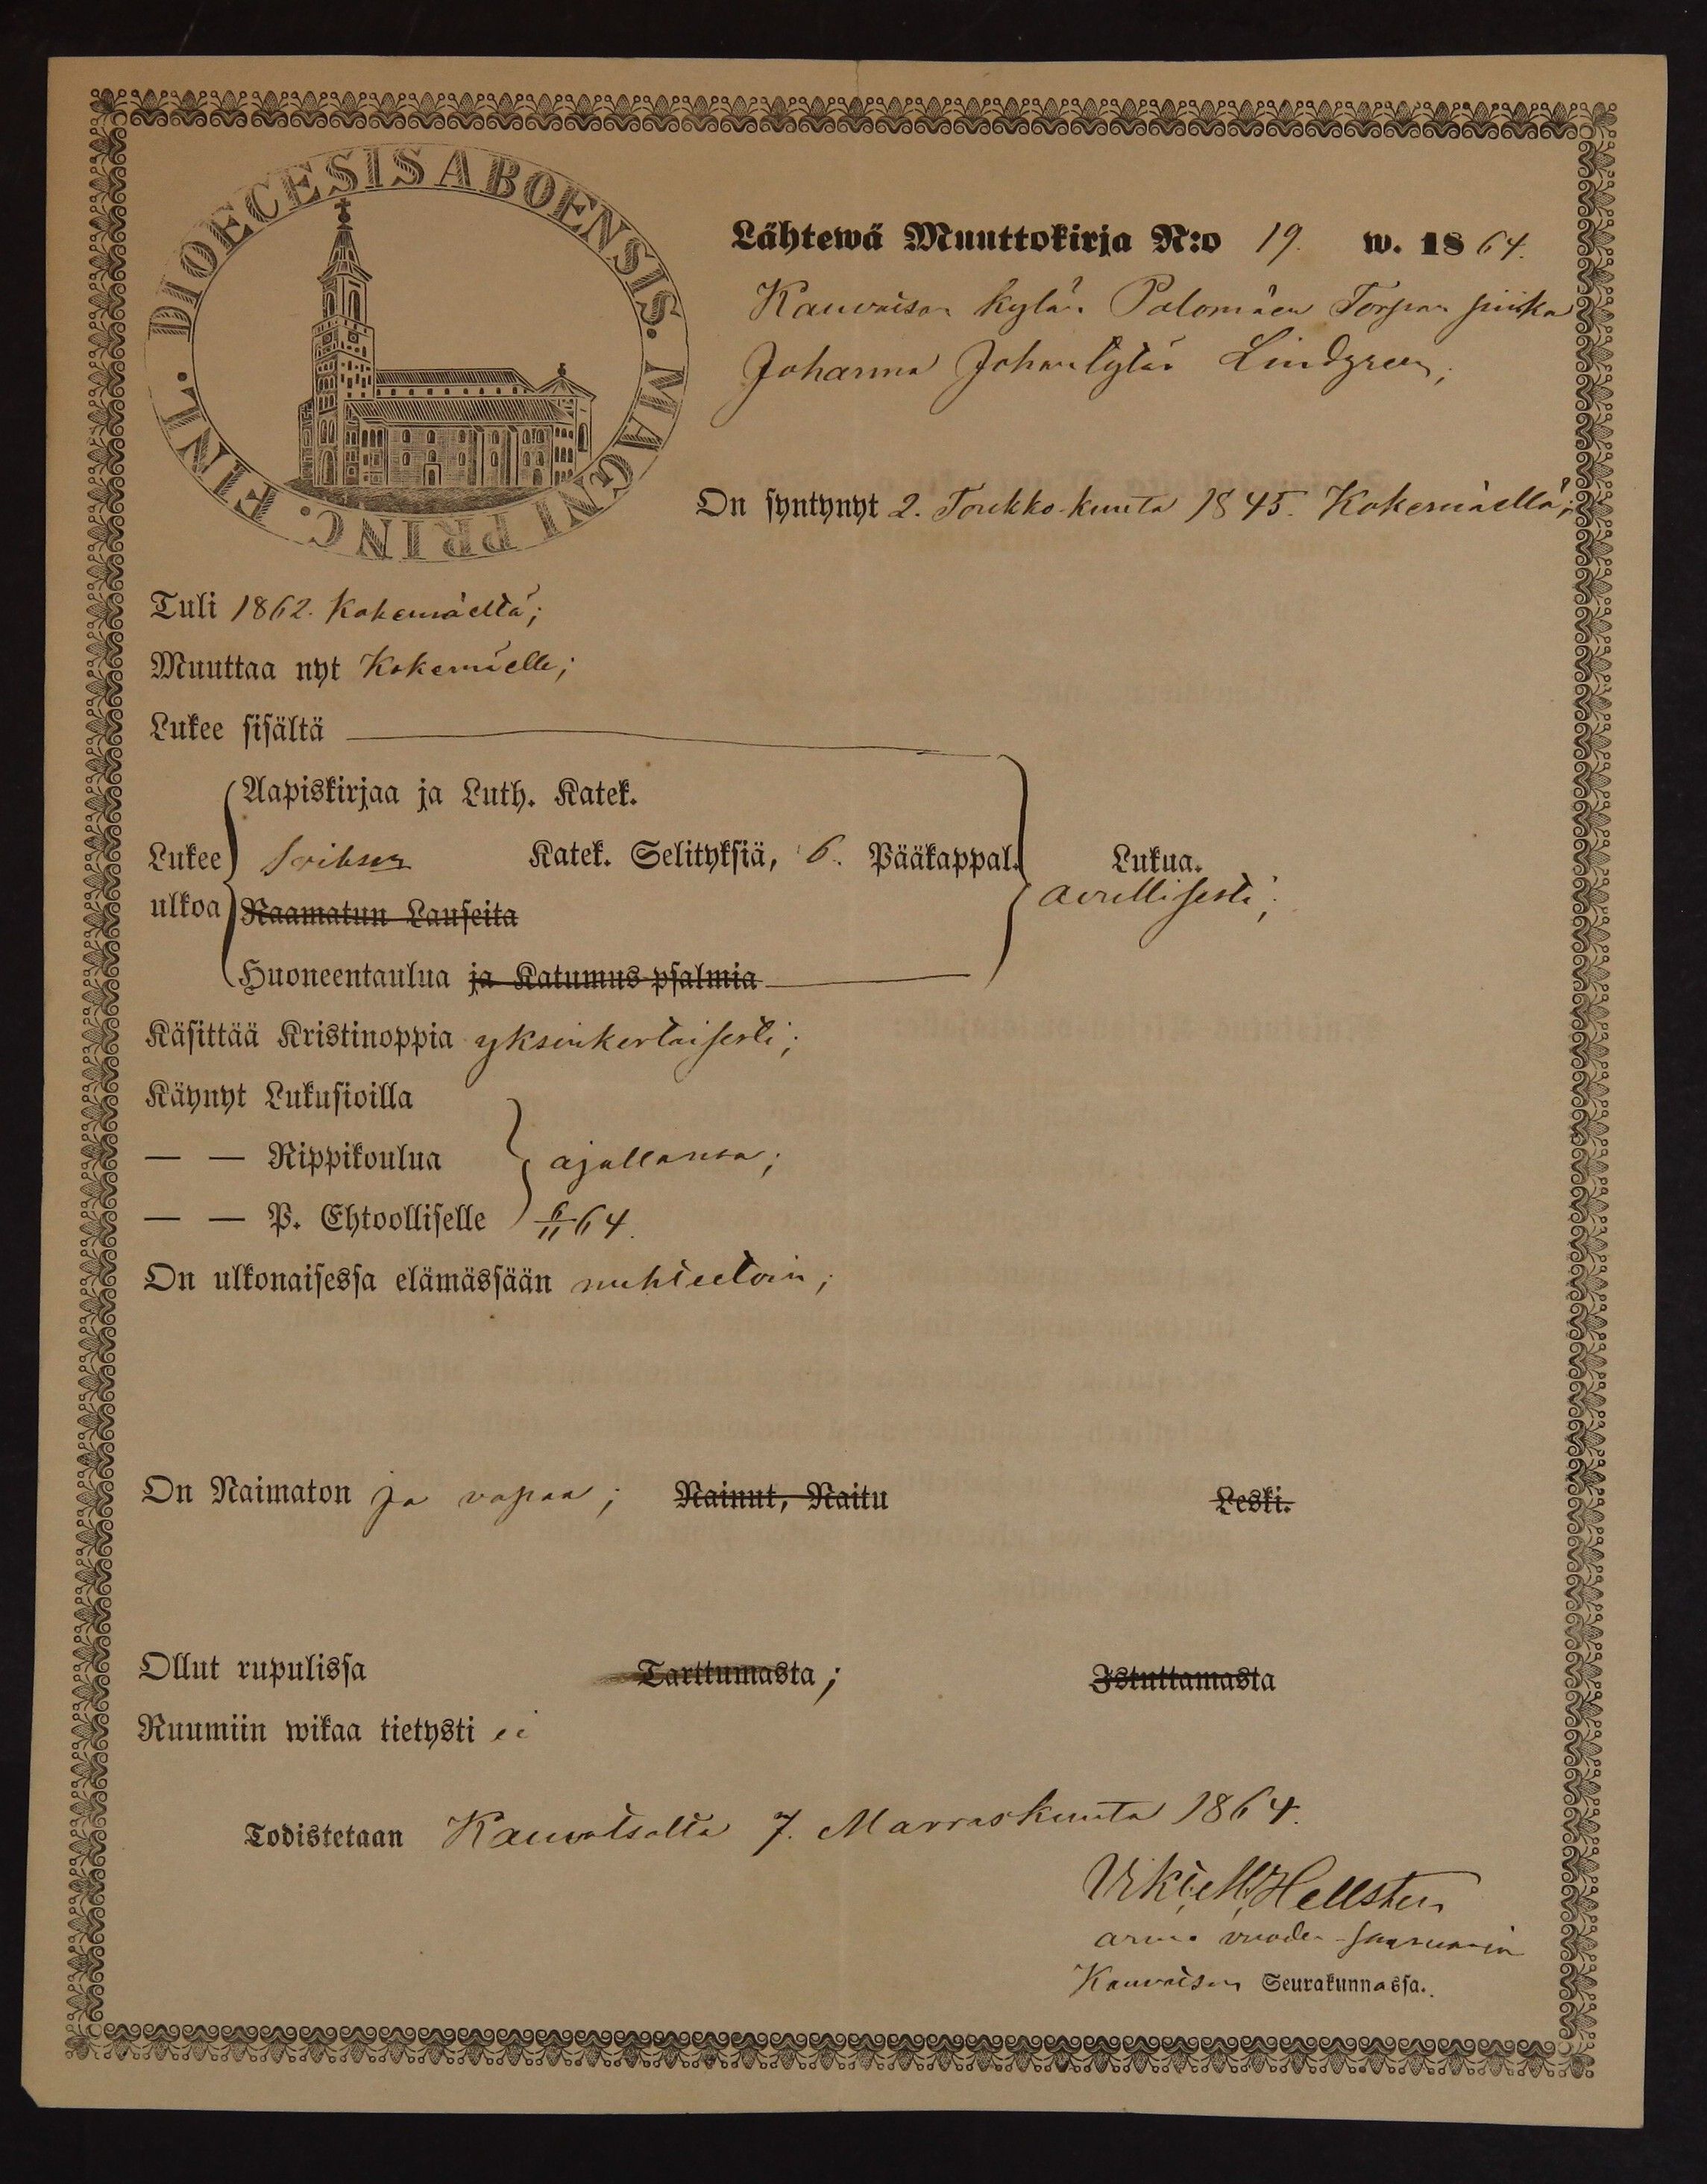 DIOECESIS ABOENSIS. MAGNI PRINC. FINL.
Lähtewä Muuttokirja N:o 19. w. 1864.
Kauvatsan kylän Palomäen Torpan piika
Johanna Johantytär Lindgren;
On syntynyt 2. Toukko-kuuta 1845. Kokemäellä;
Tuli 1862. Kokemäeltä;
Muuttaa nyt Kokemäelle;
Lukee sisältä
Aapiskirjaa ja Luth. Katek.
Lukee ulkoa
Katek. Selityksiä, 6. Pääkappal.
Lukua.
avullisesti;
Raamatun Lauseita
Huoneentaulua ja Katumus-psalmia
Käsittää Kristinoppia yksinkertaisesti;
Käynyt Lukusioilla
— — Rippikoulua ajallansa;
— — P. Ehtoolliselle 6/11 64.
On ulkonaisessa elämässään nuhteetoin;
On Naimaton ja vapaa; Nainut, Naitu Leski.
Ollut rupulissa Tarttumasta; Istuttamasta
Ruumiin wikaa tietysti ei
Todistetaan Kauvatsalta 7. Marraskuuta 1864.
Hellsten
armo vuoden-saarnaaja
Kauvatsan Seurakunnassa.